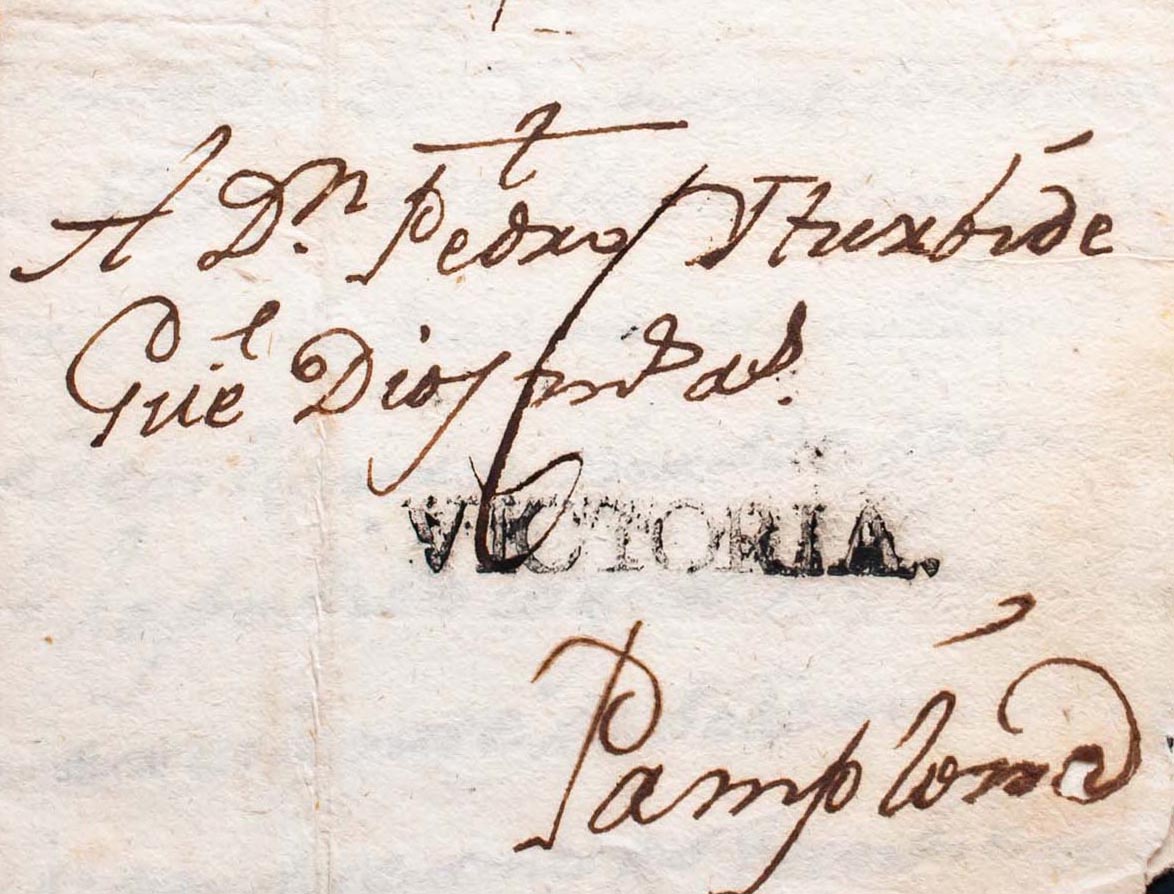 A Dn. Pedro Yturbide
Gue. Dios ms. as.
VICTORIA.
Pamplona